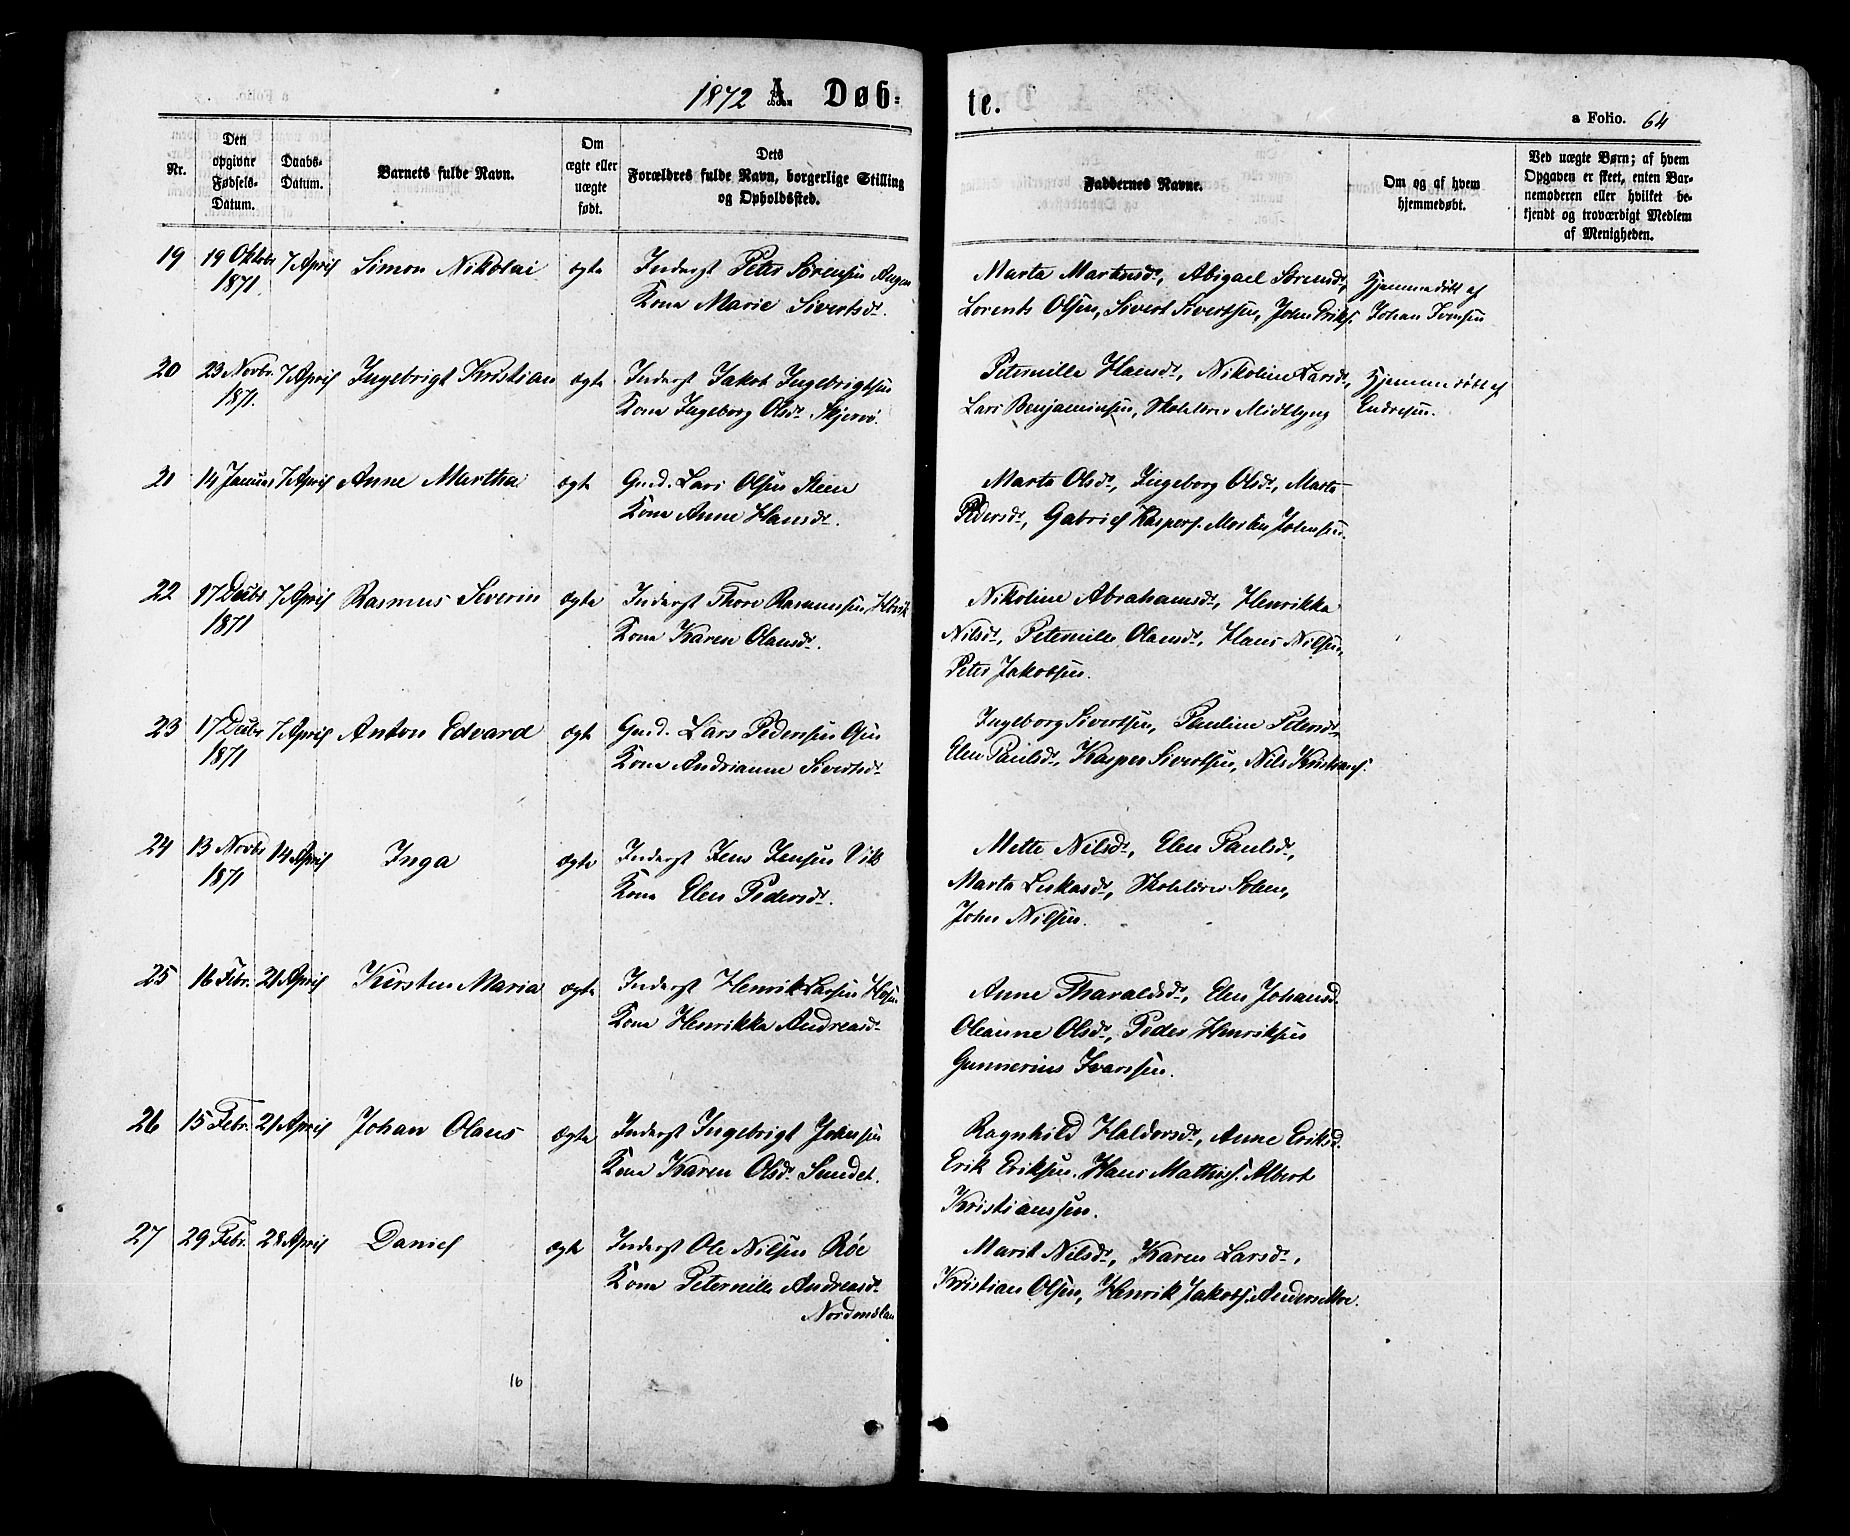 1872 A Døb-
te.
a Folio. 64
Nr.
Den opgivne Fødsels-Datum.
Daabs-Datum.
Barnets fulde Navn.
Om ægte eller uægte født.
Dets Forældres fulde Navn, borgerlige Stilling og Opholdssted.
Faddernes Navne.
Om og af hvem hjemmedøbt.
Ved uægte Børn; af hvem Opgaven er skeet, enten Barnemoderen eller hvilket bekjendt og troværdigt Medlem af Menigheden.
19 19 Oktobr 7 April Simon Nikolai ægte Inderst Peter Sørensen
1871. Kone Marie Sivertsdt.
Marta Martinsdt, Abigael Sørensdt, Hjemmedøbt af
Lorents Olsen, Sivert Sivertsen, John Eriks. Johan Iversen
20 23 Novbr. 7 April Ingebrigt Kristian ægte Inderst Jakob Ingebrigtsen
1871. Kone Ingeborg Olsdt. Skjervø.
Peternille Hansdt, Nikoline Larsdt, Hjemmedøbt af
Lars Benjaminsen, Skolelærer Midtlyng Endresen.
21 14 Januar 7 April Anne Martha ægte Gmd. Lars Olsen Steen
Kone Anne Hansdt.
Marta Olsdt, Ingeborg Olsdt, Marta
Pedersdt, Gabriel Kaspers. Morten Johnsen.
22 17 Decbr 7 April Rasmus Severin ægte Inderst Thore Rasmussen
1871 Kone Karen Olausdt.
Nikoline Abrahamsdt, Henrikka
Nilsdt, Peternille Olausdt, Hans Nilsen,
Peter Jakobsen.
23 17 Decbr 7 April Anton Edvard ægte Gmd. Lars Pedersen
1871 Kone Andrianne Sivertsdt
Ingeborg Sivertsen, Pauline Petersdt,
Elen Paulsdt, Kasper Sivertsen, Nils Kristians.
24 13 Novbr 14 April Inga ægte Inderst Jens Jensen Vik
1871 Kone Elen Pedersdt.
Mette Nilsdt, Elen Paulsdt,
Marta Lukasdt, Skolelærer Solem,
John Nilsen.
25 16 Febr. 21 April Kirsten Maria ægte Inderst Henrik Larsen
Kone Henrikka Andreasdt
Anne Tharaldsdt, Elen Johansd.
Oleanne Olsdt, Peder Henriksen
Gunnerius Ivarsen.
26 15 Febr. 21 April Johan Olaus ægte Inderst Ingebrigt Johnsen
Kone Karen Olsdt. Sundet.
Ragnhild Haldorsdt, Anne Eriksd.
Erik Eriksen. Hans Mathis. Albert
Kristianssen.
27 29 Febr. 28 April Daniel ægte Inderst Ole Nilsen Røe
Kone Peternille Andreasdt
Marit Nilsdt, Karen Larsdt,
Kristian Olsen, Henrik Jakobs. Anders Moe.
16